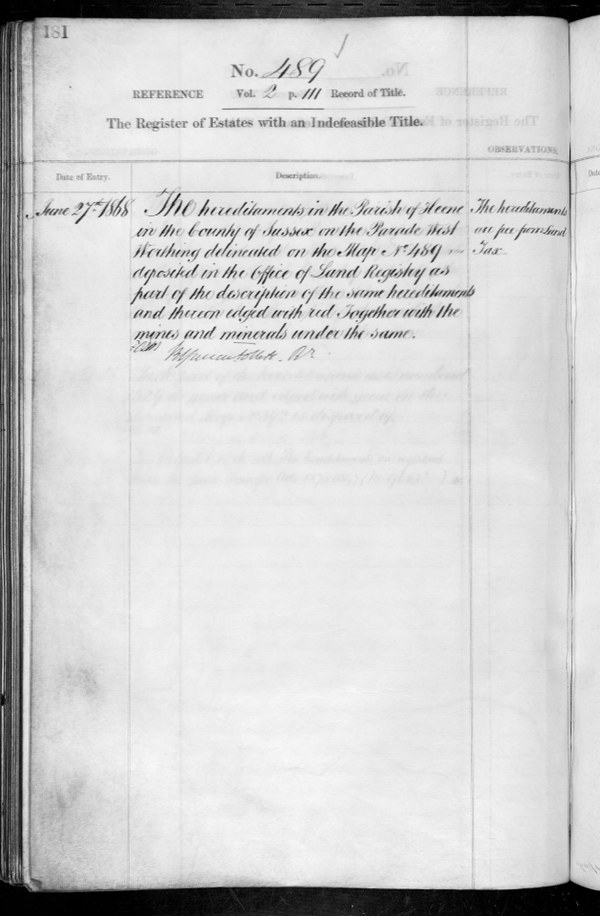 181
No. 489
REFERENCE Vol. 2 p. 111 Record of Title.
The Register of Estates with an Indefeasible Title.
OBSERVATIONS.
Date of Entry.
Description.
June 27th 1868
The hereditaments in the Parish of Heene
in the County of Sussex on the Parade West
Worthing delineated on the Map No 489
deposited in the Office of Land Registry as
part of the description of the same hereditaments
and thereon edged with red Together with the
mines and minerals under the same.
The hereditaments
are free from Land
Tax